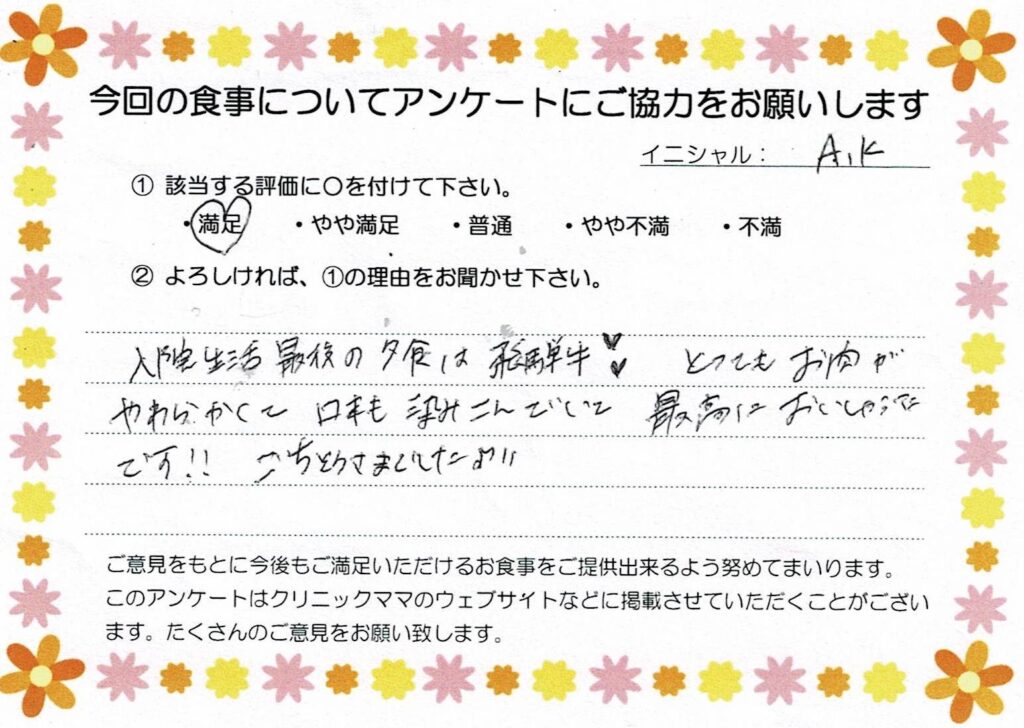 今回の食事についてアンケートにご協力をお願いします
イニシャル： A.K
① 該当する評価に○を付けて下さい。
・満足 ・やや満足 ・普通 ・やや不満 ・不満
② よろしければ、①の理由をお聞かせ下さい。
入院生活最後の夕食は飛騨牛♥♥ とってもお肉が
やわらかくて 口本も染みこんでいて 最高においしかった
です!! ごちそうさまでした
ご意見をもとに今後もご満足いただけるお食事をご提供出来るよう努めてまいります。
このアンケートはクリニックママのウェブサイトなどに掲載させていただくことがござい
ます。たくさんのご意見をお願い致します。